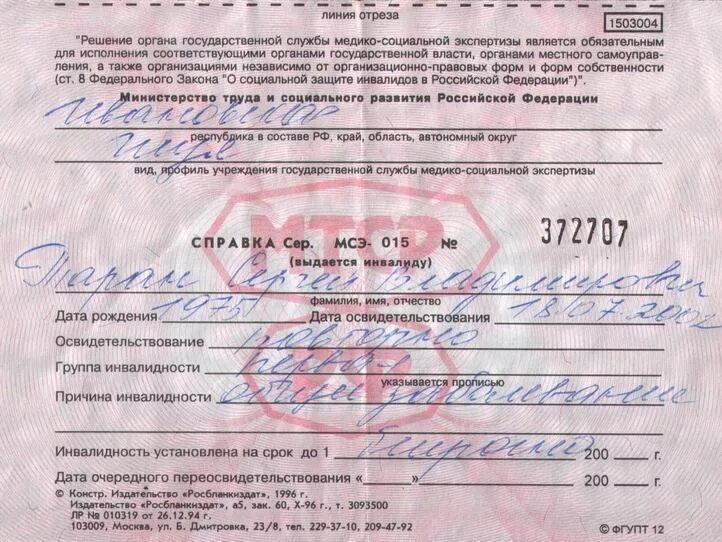 линия отреза
1503004
"Решение органа государственной службы медико-социальной экспертизы является обязательным
для исполнения соответствующими органами государственной власти, органами местного самоуправ-
ления, а также организациями независимо от организационно-правовых форм и форм собственности
(ст. 8 Федерального Закона "О социальной защите инвалидов в Российской Федерации")".
Министерство труда и социального развития Российской Федерации
Ивановская
республика в составе РФ, край, область, автономный округ
вид, профиль учреждения государственной службы медико-социальной экспертизы
МТСР
СПРАВКА Сер. МСЭ- 015 № 372707
(выдается инвалиду)
Таран Сергей Владимирович
фамилия, имя, отчество
Дата рождения 1975 Дата освидетельствования 18.07.2002
Освидетельствование повторно
Группа инвалидности первая
указывается прописью
Причина инвалидности общее заболевание
Инвалидность установлена на срок до 1 бессрочно 200 г.
Дата очередного переосвидетельствования « » 200 г.
© Констр. Издательство «Росбланкиздат», 1996 г.
Издательство «Росбланкиздат», а5, зак. 60, Х-96 г., т. 3093500
ЛР № 010319 от 26.12.94 г.
103009, Москва, ул. Б. Дмитровка, 23/8, тел. 229-37-10, 209-47-92
© ФГУПТ 12